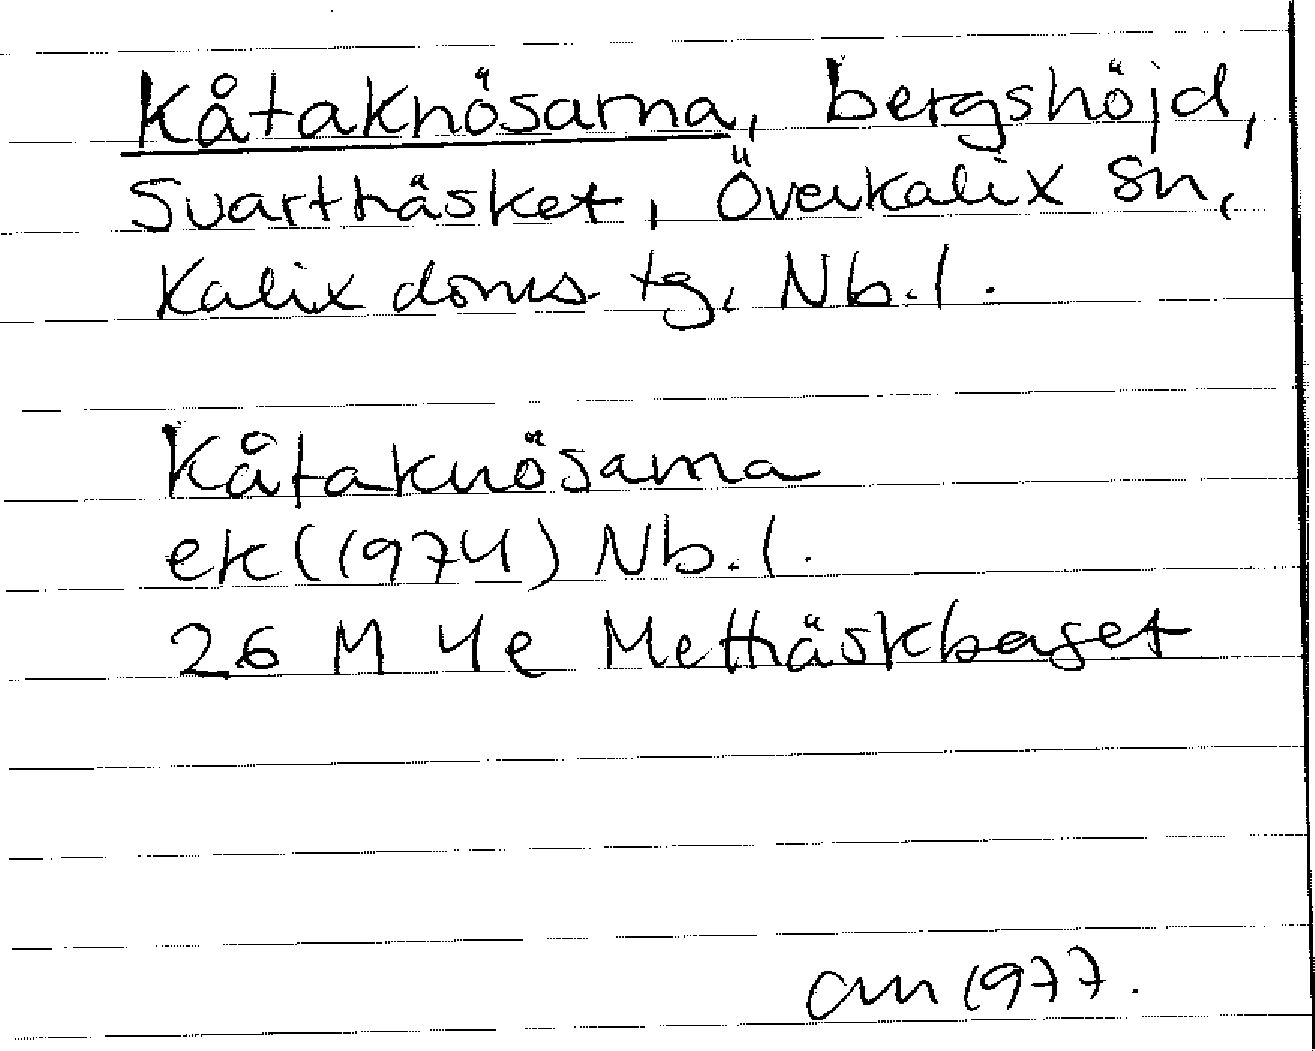 Kåtaknösarna, bergshöjd,
Svartträsket, Överkalix sn,
Kalix doms tg, Nb.l.
Kåtaknösarna
ek (1974) Nb.l.
26 M 4e Metträskbaset
am 1977.